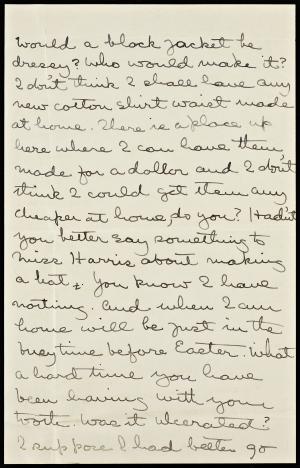 would a black jacket be
dressy? Who would make it?
I don't think I shall have any
new cotton shirt waist made
at home. There is a place up
here where I can have them
made for a dollar and I don't
think I could get them any
cheaper at home, do you? Hadn't
you better say something to
Miss Harris about making
a hat. You know I have
nothing. And when I am
home will be just in the
busy time before Easter. What
a hard time you have
been having with your
tooth. Was it ulcerated?
I suppose I had better go